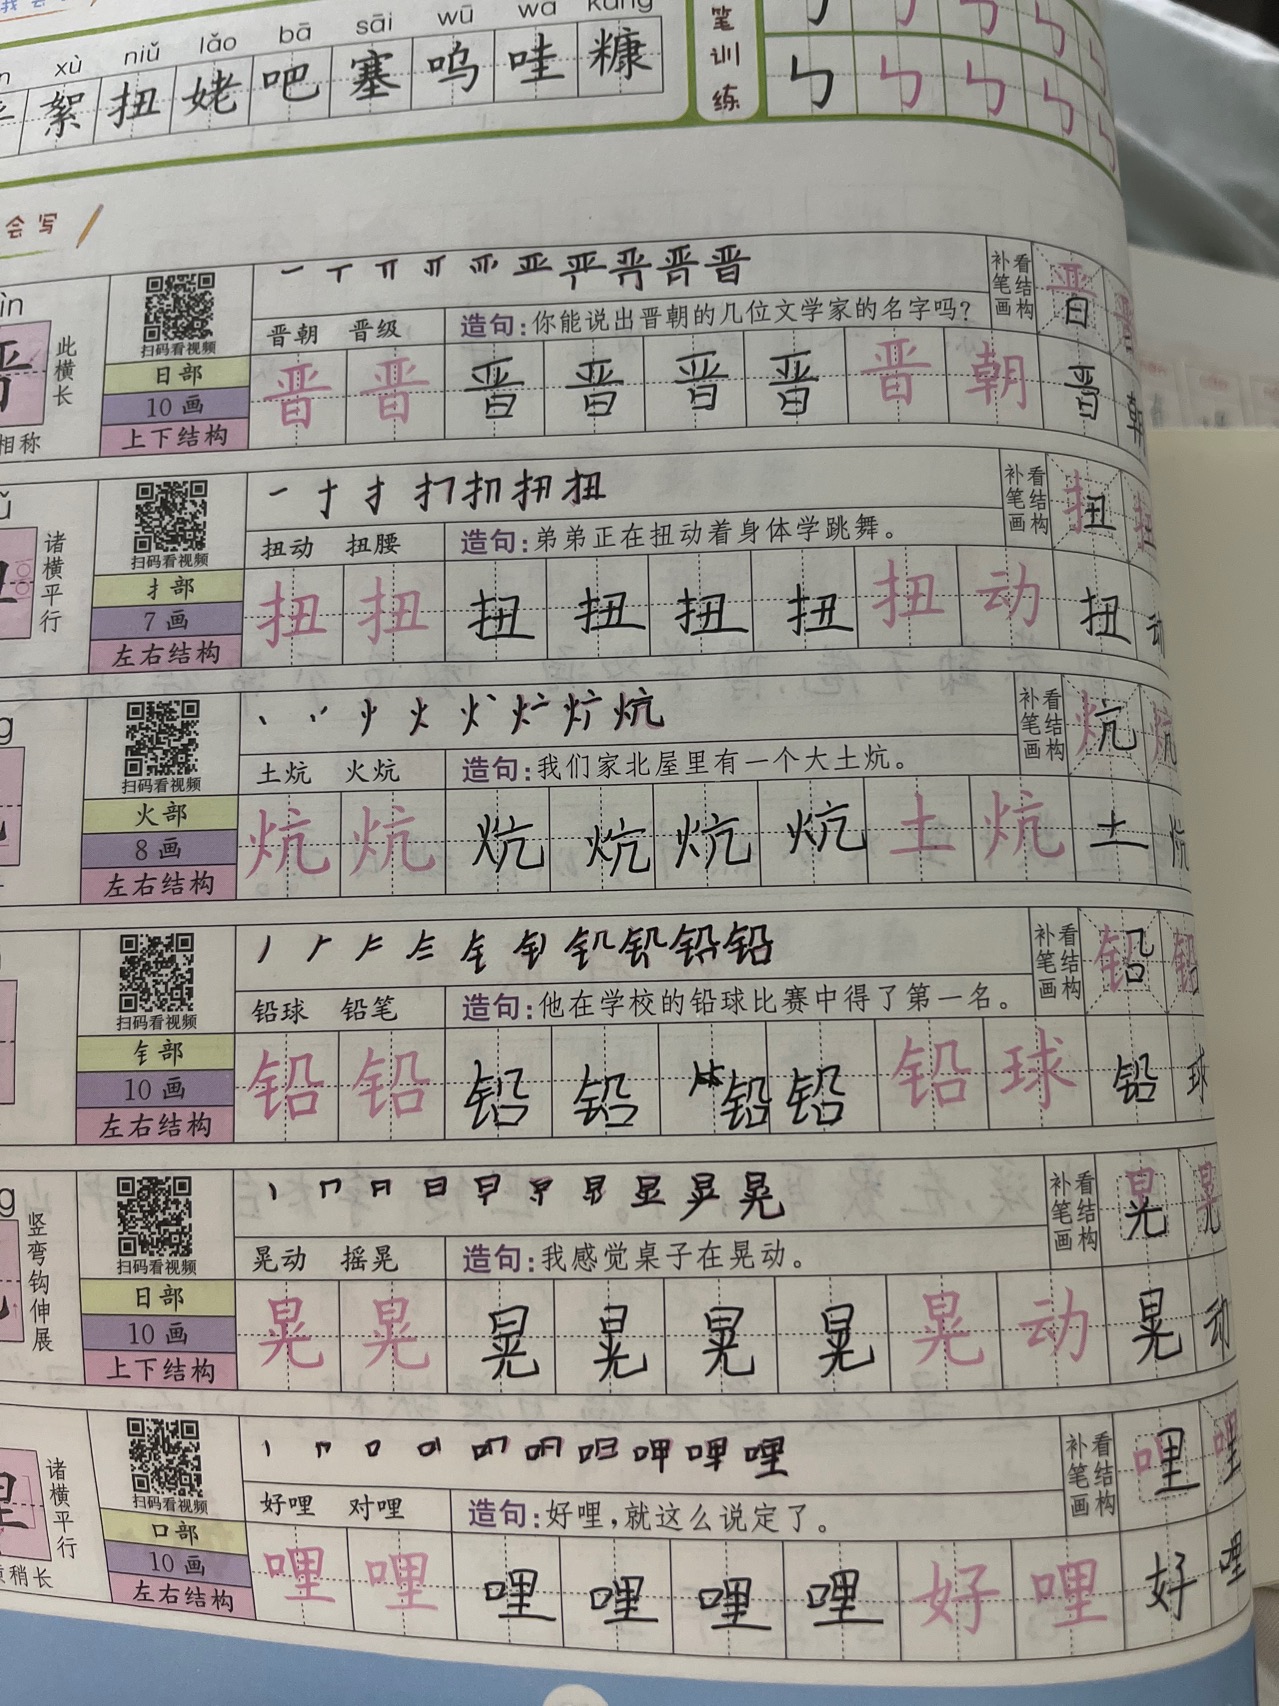 xù niǔ lǎo bā sāi wū wa kāng
絮 扭 姥 吧 塞 呜 哇 糠
笔训练
会写
一
晋
补笔画 看结构
晋 晋
扫码看视频
此横长
晋朝 晋级
造句:你能说出晋朝的几位文学家的名字吗?
日部
10 画
上下结构
相称
晋 晋 晋 晋 晋 晋 晋 朝 晋 朝
扭
补笔画 看结构
扭 扭
扫码看视频
诸横平行
扭动 扭腰
造句:弟弟正在扭动着身体学跳舞。
扌部
7 画
左右结构
扭 扭 扭 扭 扭 扭 扭 动 扭 动
炕
补笔画 看结构
炕 炕
扫码看视频
土炕 火炕
造句:我们家北屋里有一个大土炕。
火部
8 画
左右结构
炕 炕 炕 炕 炕 炕 土 炕 土 炕
铅
补笔画 看结构
铅 铅
扫码看视频
铅球 铅笔
造句:他在学校的铅球比赛中得了第一名。
钅部
10 画
左右结构
铅 铅 铅 铅 铅 铅 铅 球 铅 球
晃
补笔画 看结构
晃 晃
扫码看视频
竖弯钩伸展
晃动 摇晃
造句:我感觉桌子在晃动。
日部
10 画
上下结构
晃 晃 晃 晃 晃 晃 晃 动 晃 动
哩
补笔画 看结构
哩 哩
扫码看视频
诸横平行
稍长
好哩 对哩
造句:好哩,就这么说定了。
口部
10 画
左右结构
哩 哩 哩 哩 哩 哩 好 哩 好 哩